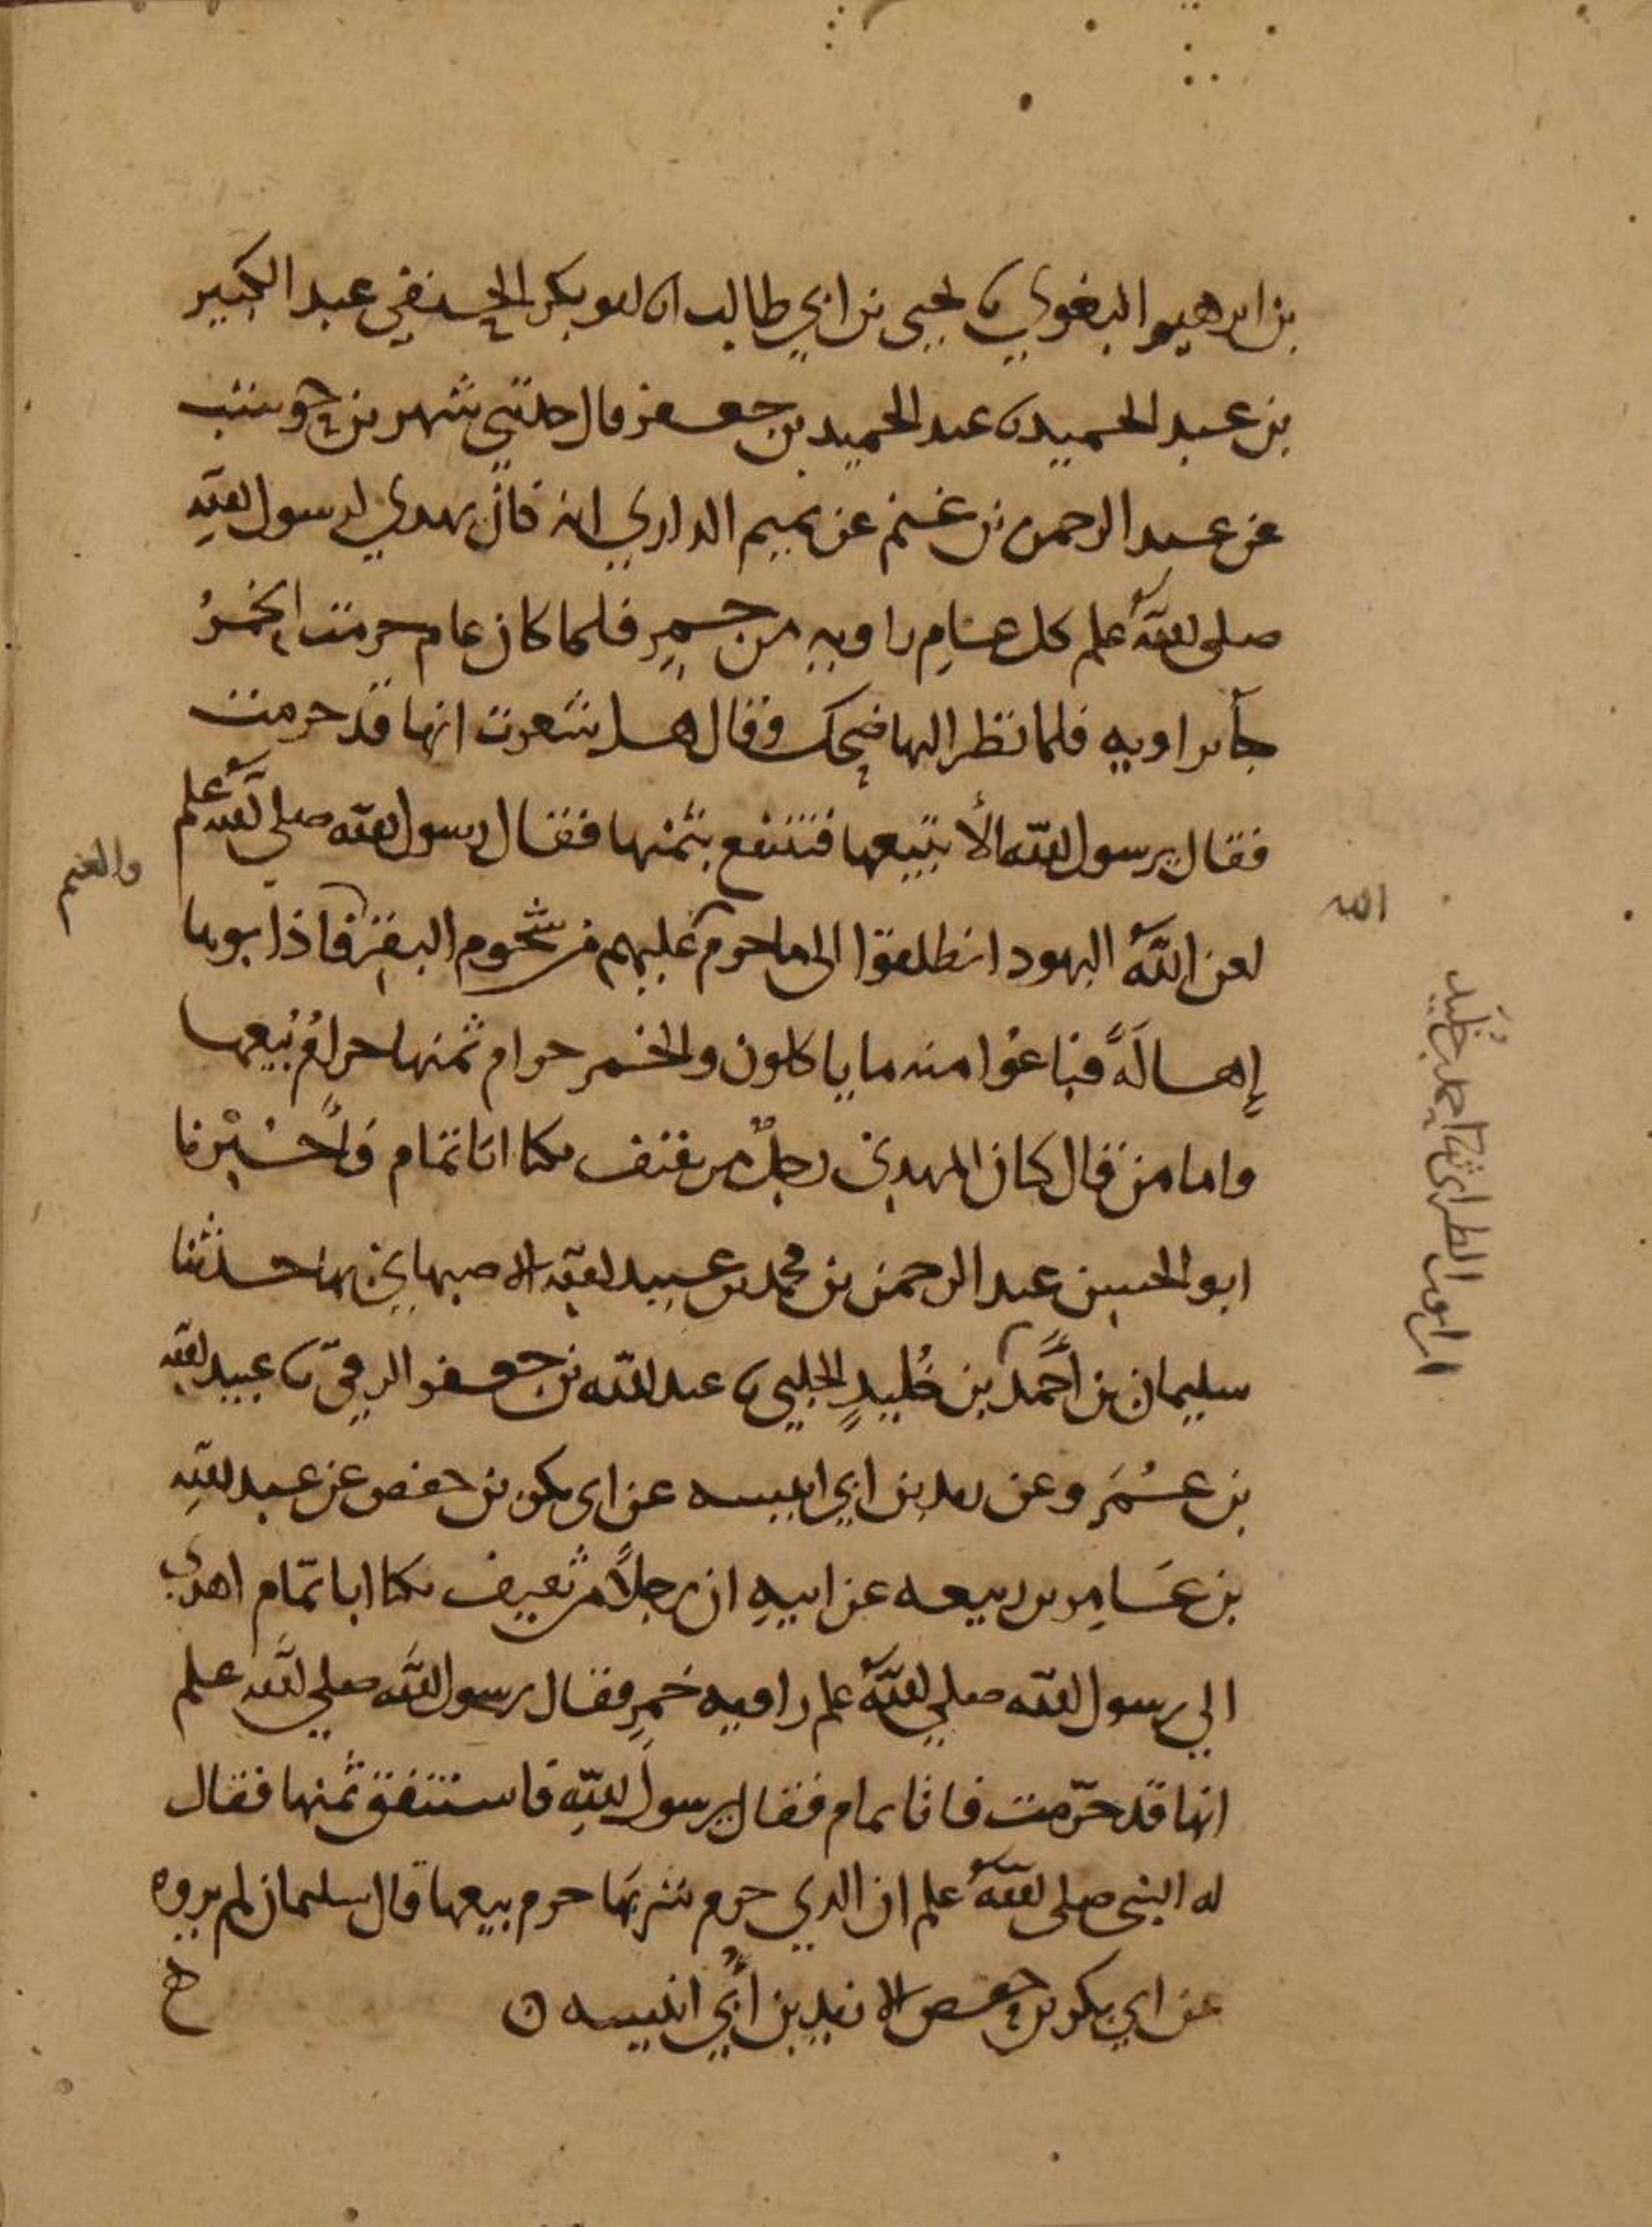 بن ابرهيم البغوي نا يحيى بن ابي طالب انا ابو بكر الحنفي عبد الكبير
بن عبد الحميد نا عبد الحميد بن جعفر قال حدثني شهر بن حوشب
عن عبد الرحمن بن غنم عن تميم الداري انه كان يهدي لرسول الله
صلى الله علم كل عام راويه من خمر فلما كان عام حرمت الخمر
جآ براويه فلما نظر اليها ضحك وقال هل شعرت انها قد حرمت
فقال يرسول الله ألا نبيعها فننتفع بثمنها فقال رسول الله صلى الله علم
لعن الله اليهود انطلقوا الى ما حرم عليهم من شحوم البقر فاذابوها
والغنم
الله
إهالةً فباعوا منه ما ياكلون والخمر حرام ثمنها حرام بيعها
واما من قال كان المهدي رجل من ثقيف يكنا ابا تمام فاخبرنا
ابو الحسين عبد الرحمن بن محمد بن عبيد الله الاصبهاني بها حدثنا
سليمان بن احمد بن خليد الحلبي نا عبد الله بن جعفر الرقي نا عبيد الله
بن عمر وعن زيد بن ابي انيسه عن ابي بكر بن حفص عن عبد الله
بن عامر بن ربيعه عن ابيه ان رجلاً من ثقيف يكنا ابا تمام اهدى
الي رسول الله صلي الله علم راويه خمر فقال رسول الله صلي الله علم
انها قد حرّمت يا با تمام فقال يرسول الله فاستنفق ثمنها فقال
له النبي صلى الله علم ان الذي حرم شربها حرم بيعها قال سليمان لم يروه
عن ابي بكر بن حفص الا زيد بن أبي انيسه